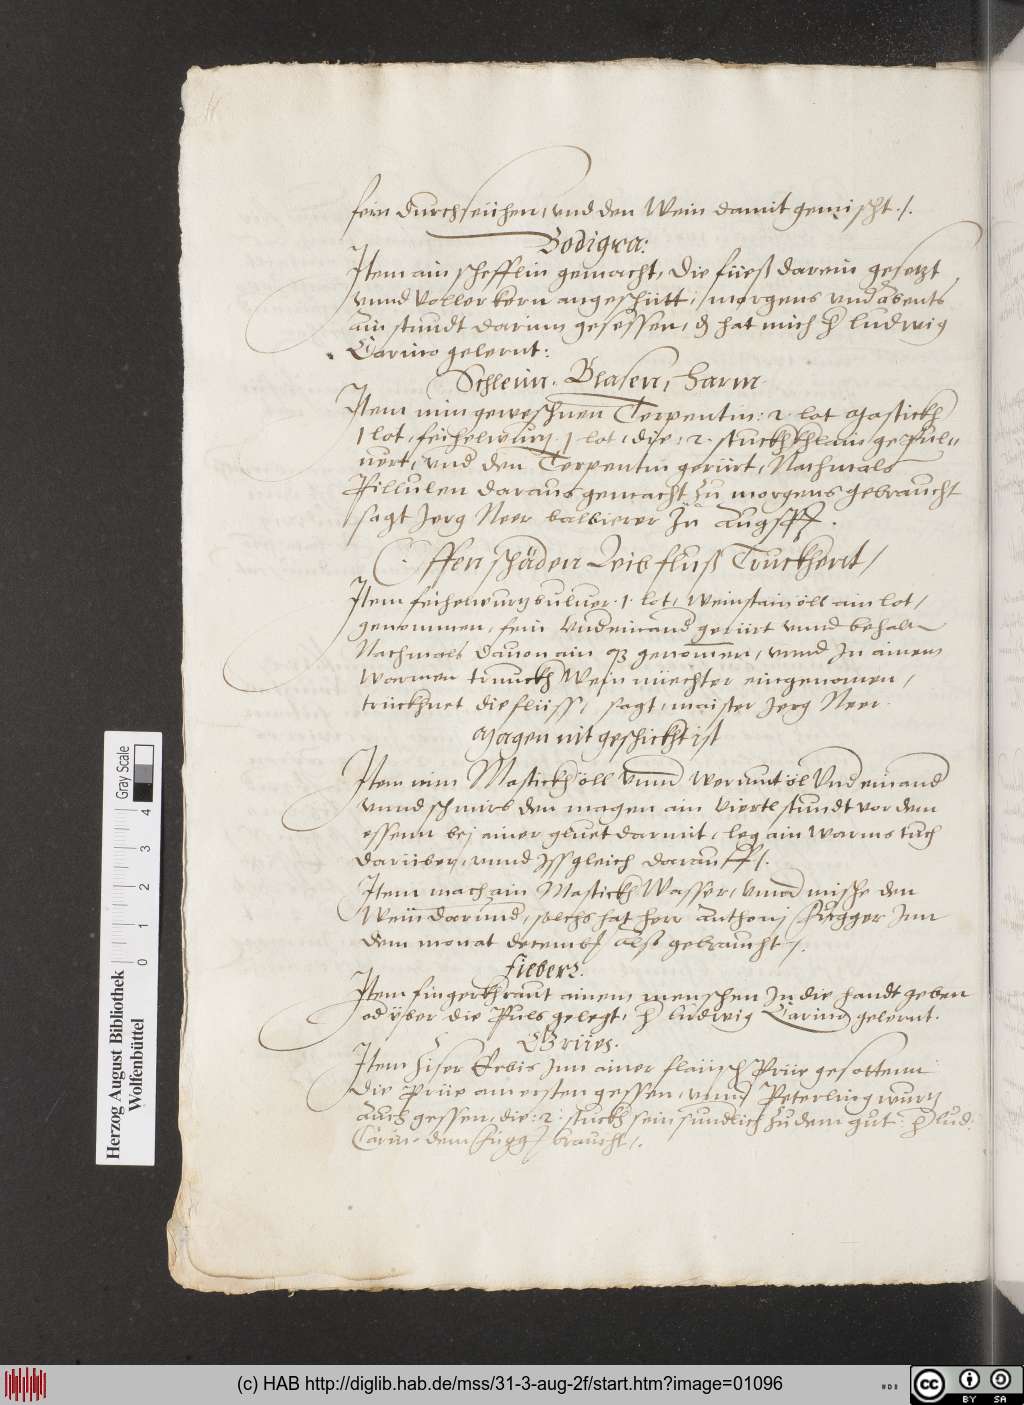 fein durchseühen, vnd den Wein damit gemischt ./.
Bodigra:
Item ain schefflin gemacht, die füeß darein gesetzt
vnnd voller kern angeschütt, morgens vnd abents
Ain stundt darinn gesessen, hat mich h ludwig
Carino gelernt:
Schleim. Blasen, Harm
Item nim geweschnen Terpentin: 2. lot Mastickh
1 lot, feichelwurz. 1. lot, die .2. stuckh khlain gepul„
uert, vnd den Terpentin gerürt, Nachmals
Pillulen daraus gemacht zu morgens gebraucht
sagt Jerg Neer balbierer zu Augsp.
Offen schäden Leib fluß Truckhent /
Item feichelwurzbuluer .1. lot, Weinstain öll ain lot /
genommen, fein vndeinand gerürt vnnd behalt
Nachmals dauon ain genomen, vnnd In ainem
warmen trunckh Wein nüechter eingenomen,
trückhnet die flüss, sagt maister Jerg Neer
Magen nit geschickht ist
Item nim Mastickh öll vnnd Wermut öl vndeinand
vnnd schmirb den magen ain viertl stundt vor dem
essenn bej ainer gluet darmit, leg ain warms tuch
darüber, vnnd Issgleich darauff /.
Item mach ain Mastickh Wasser, vnnd mische den
Wein darund, solchs hat herr Anthonj Fugger Inn
dem monat decemb also gebraucht /.
Fieber.
Item fingerkhraut ainem menschen In die handt geben
od yber die Puls gelegt, h ludwig Carino gelernt.
Grües.
Item Ziser Erbis Inn ainer flaisch Prüe gesottenn
die Prüe am ersten gessen, vnnd Peterling wurz
auch gessen, die .2. stuckh sein sundlich zu dem gut. h Lud:
Carin dem fugg braucht /.
Herzog August Bibliothek
Wolfenbüttel
Gray Scale
0 1 2 3 4
(c) HAB http://diglib.hab.de/mss/31-3-aug-2f/start.htm?image=01096
cc BY SA